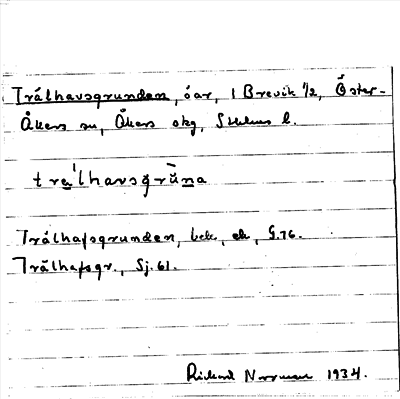 Trälhavsgrunden, öar, 1 Brevik 1/2, Öster-
Åkers sn, Åkers skg, Sthlms l.
träˈlhavsgrūna
Trälhafsgrunden, bek, ek, G.76.
Trälhafsgr., Sj. 61.
Rickard Norrman 1934.